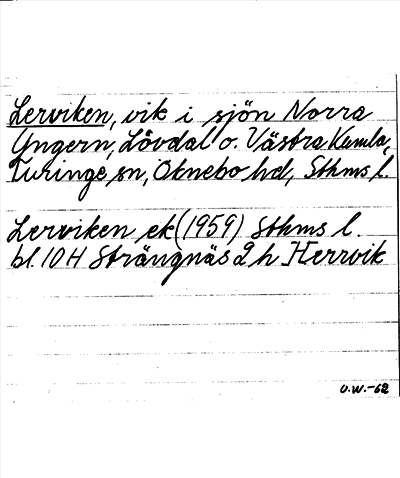 Lerviken, vik i sjön Norra
Yngern, Lövdal o. Västra Kumla,
Turinge sn, Öknebo hd, Sthms l.
Lerviken ek (1959) Sthms l.
bl. 10 H Strängnäs 2 h Herrvik
U.W.-62